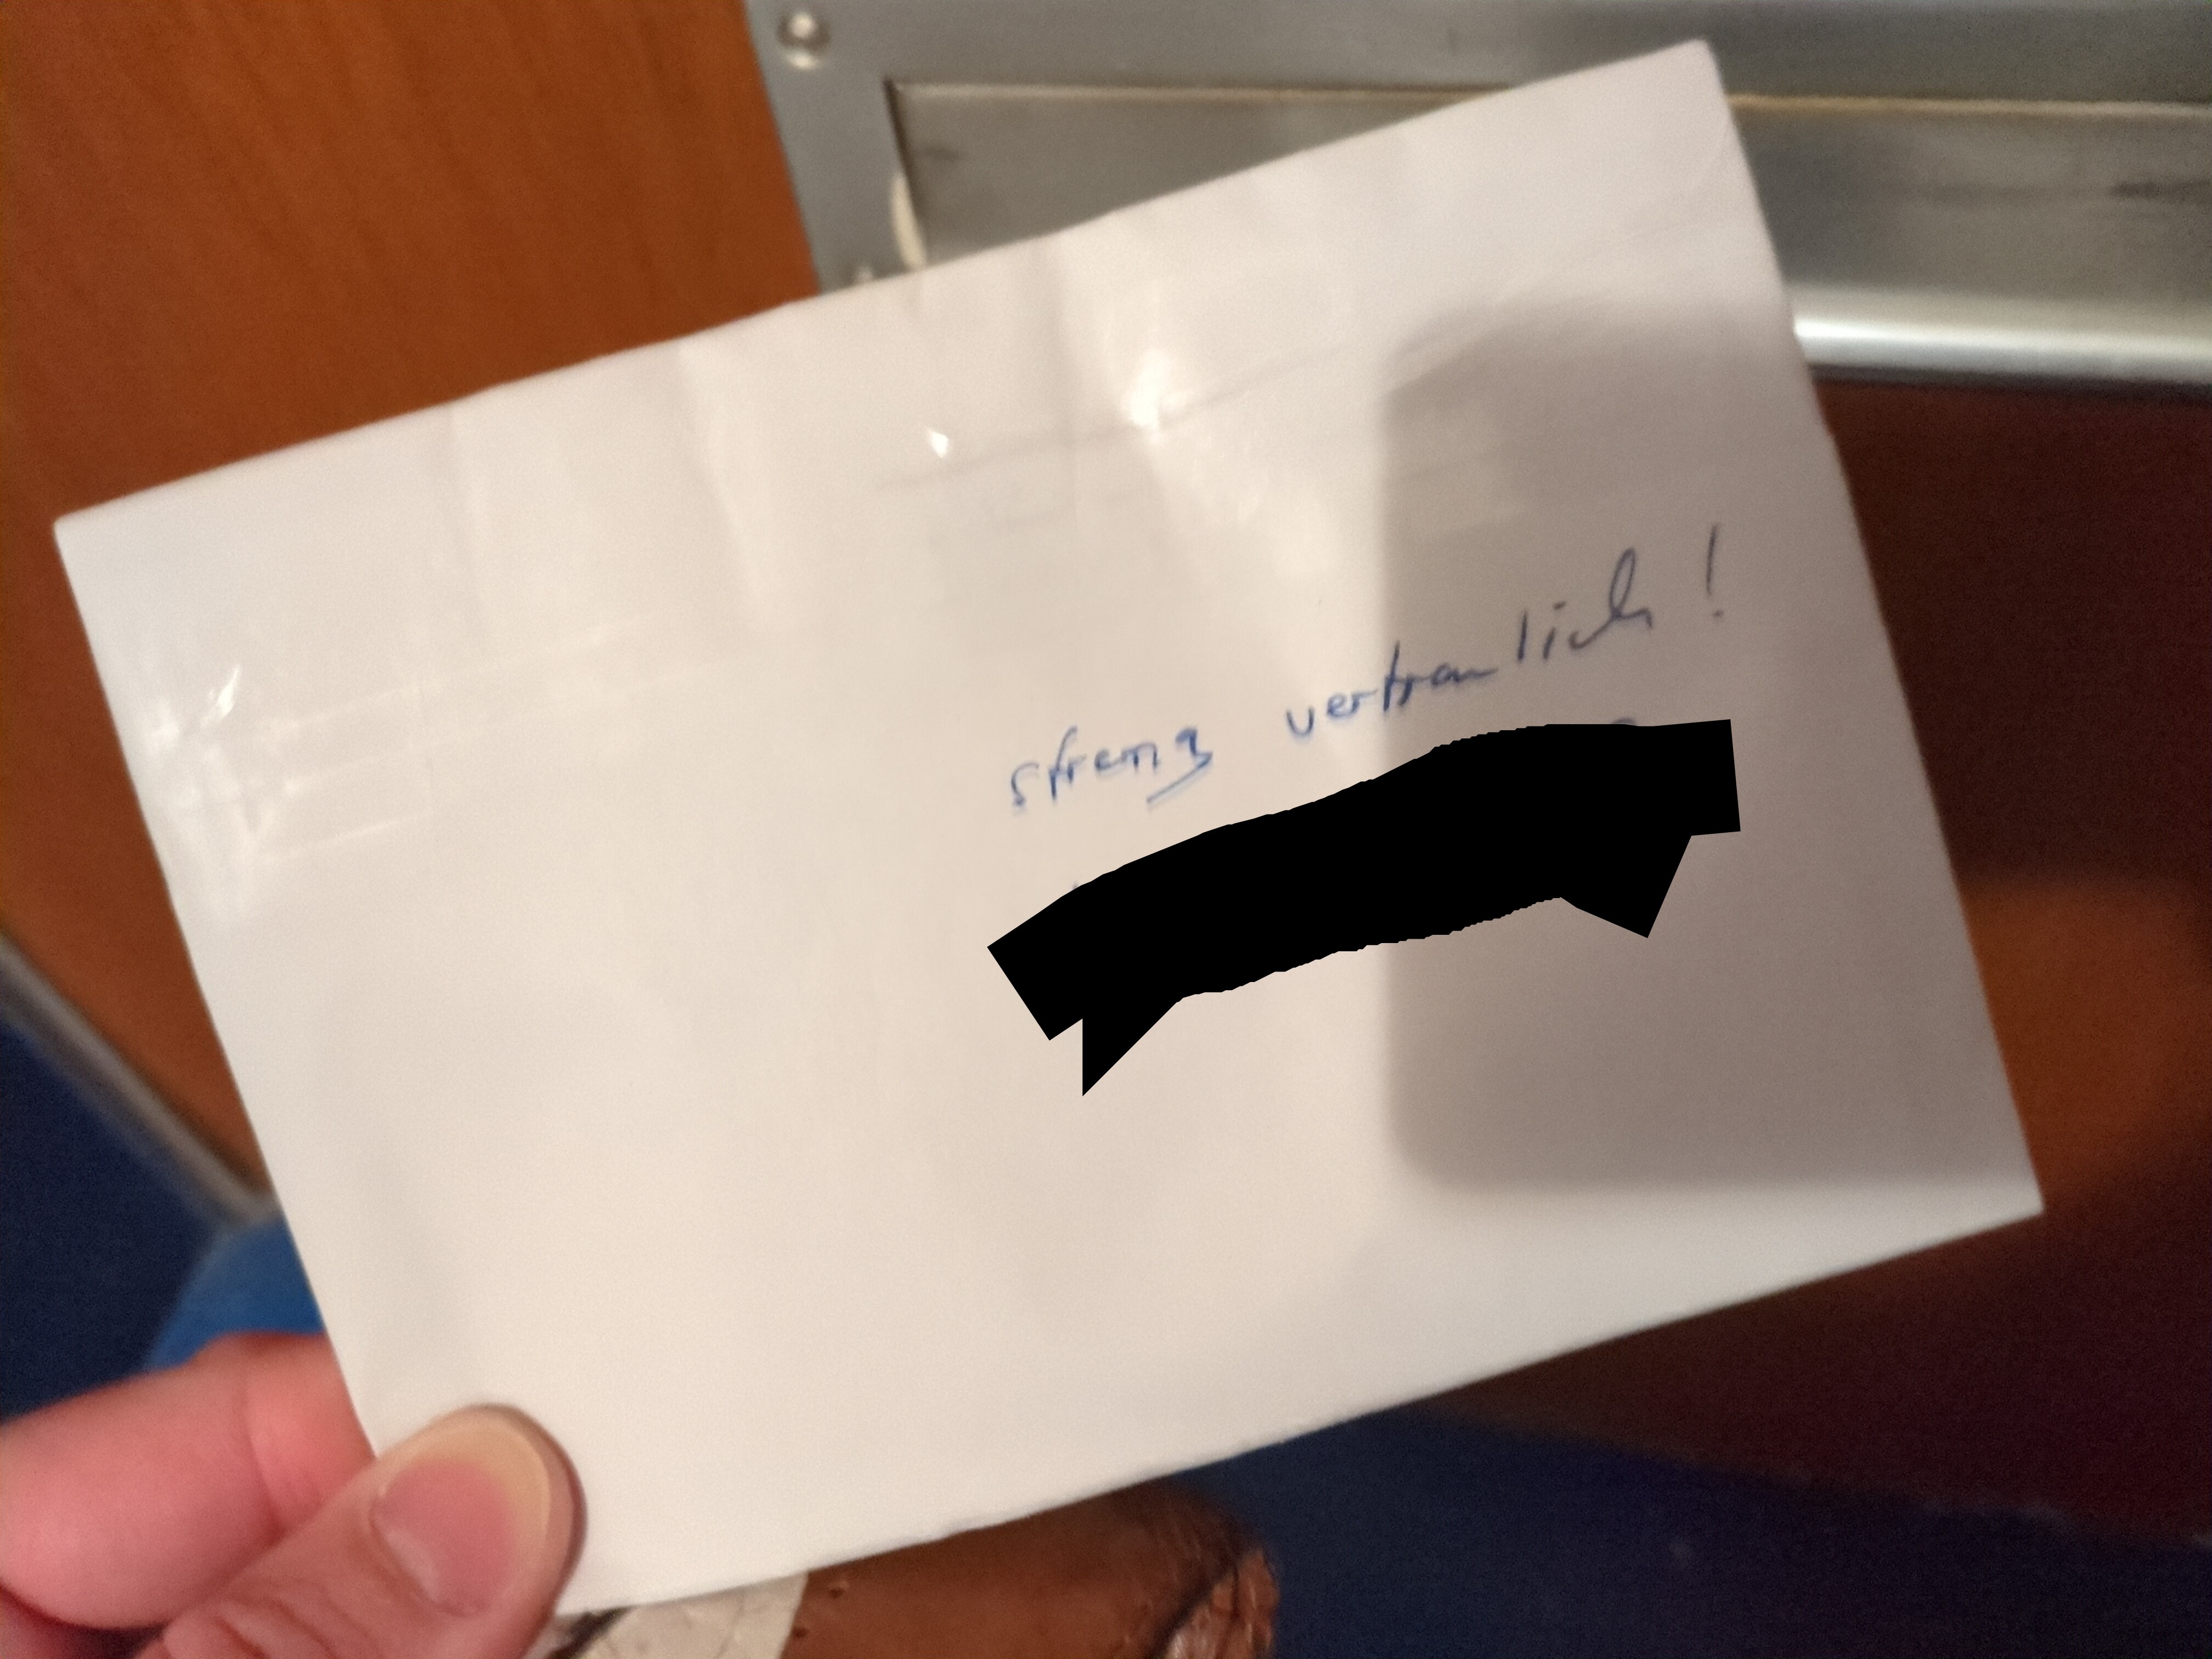 streng vertraulich!